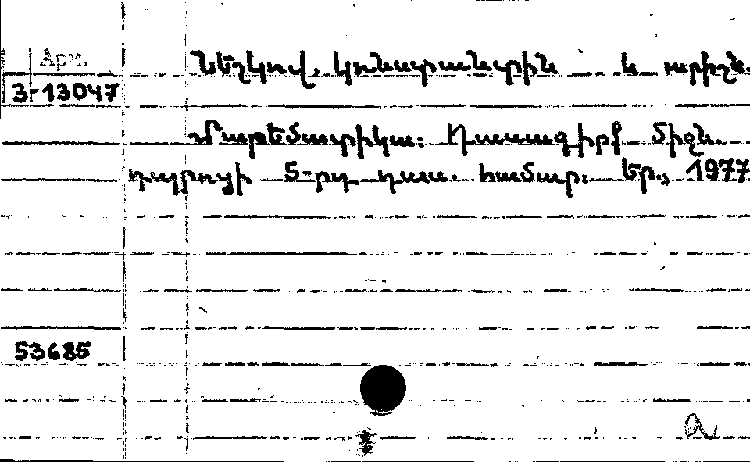 Арм.
Նեշկով, Կոնստանտին և ուրիշն.
3-13047
Մաթեմատիկա: Դասագիրք միջն.
դպրոցի 5-րդ դաս. համար: Եր., 1977
53685
a